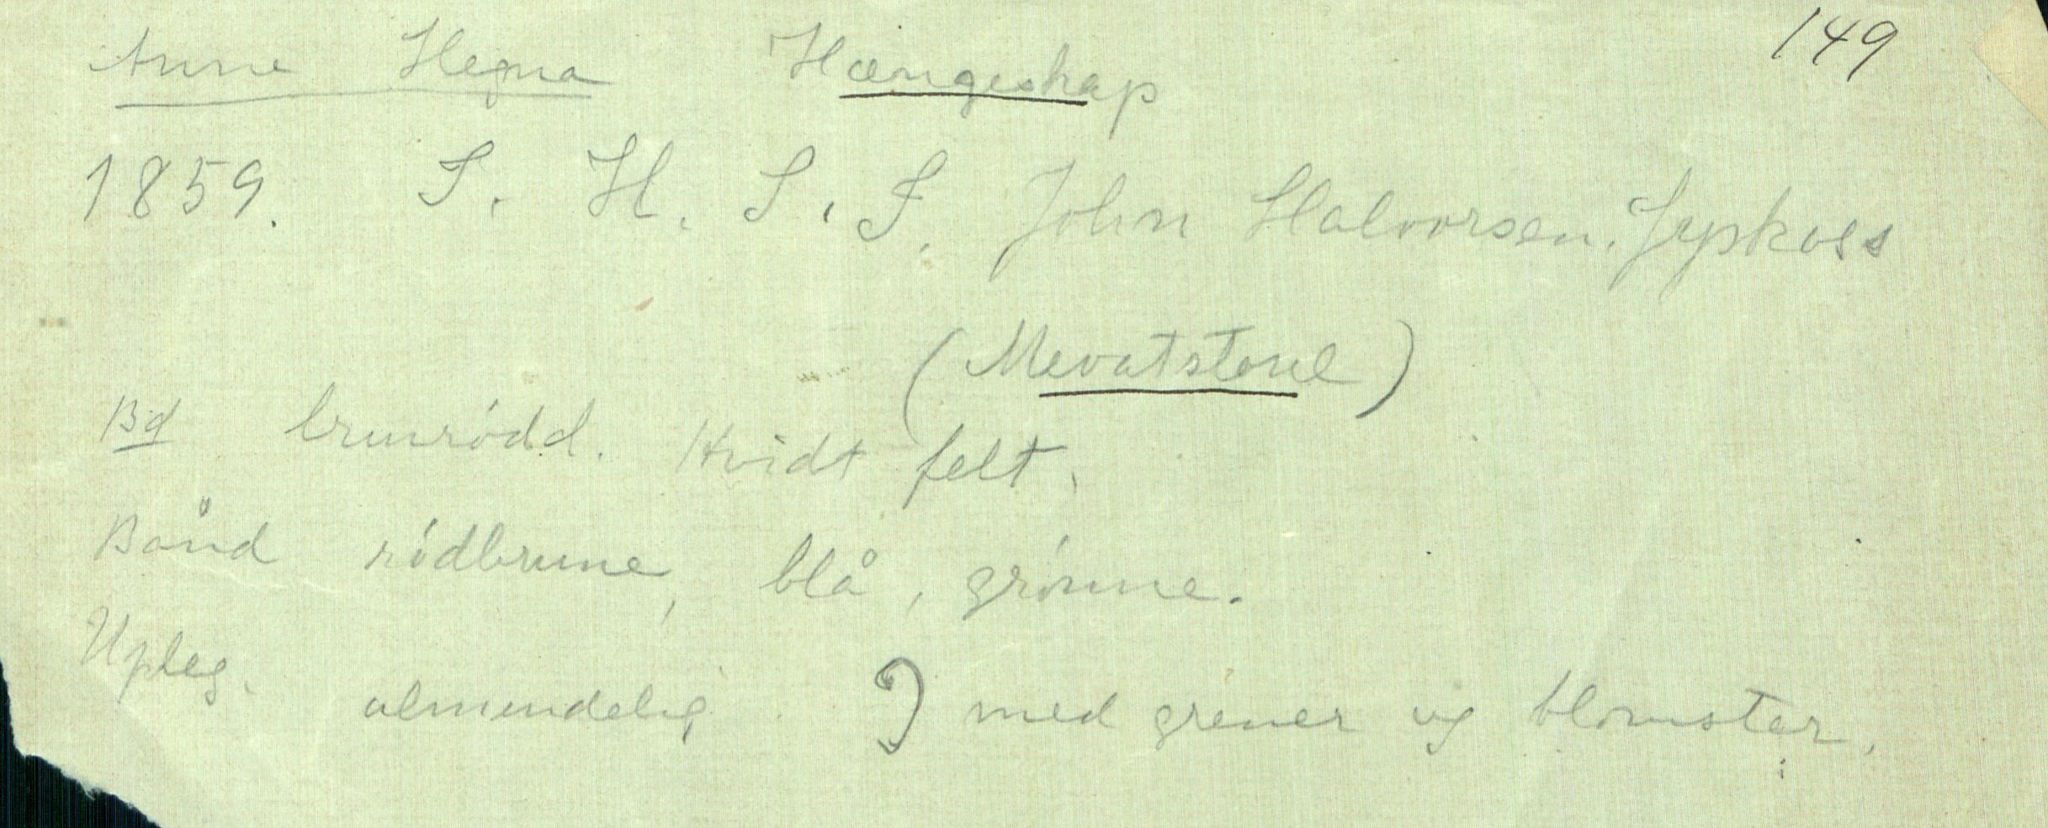 149
Anne Hegna Hængeskap
1859. S. H. S. F. John Halvorsen.
(Mevatstoul)
Bd brunrødd. Hvidt felt.
Bånd rødbrune, blå, grønne.
Upleg. almindelig med grener og blomster.